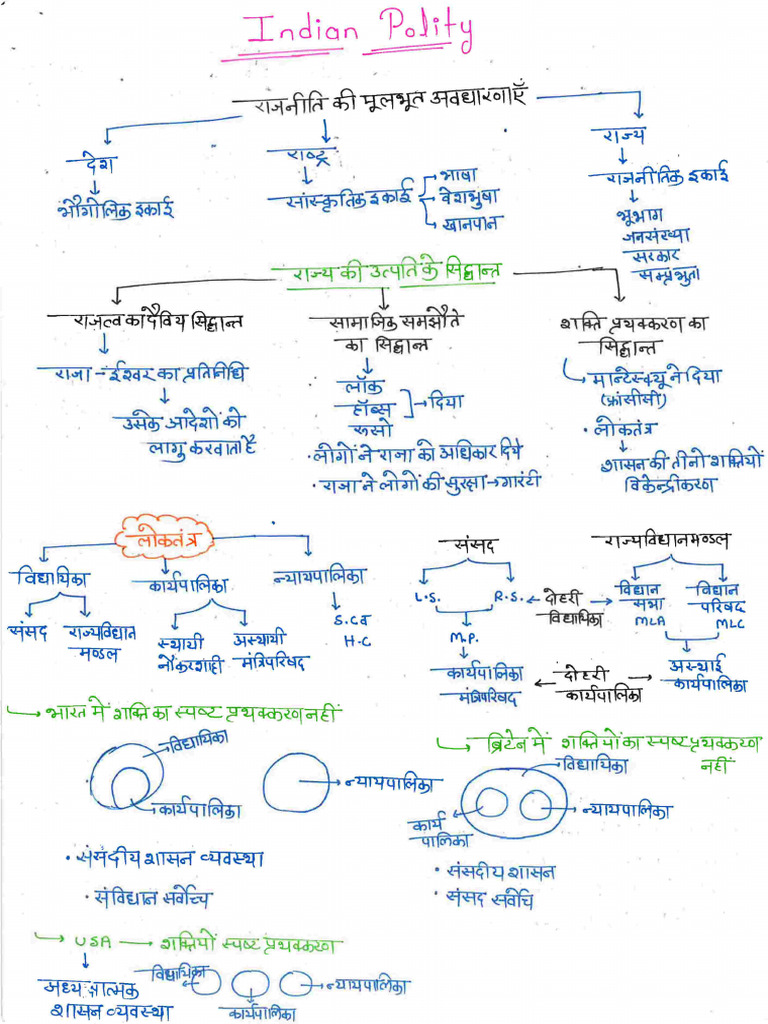 Indian Polity
राजनीति की मूलभूत अवधारणाएँ
देश
राष्ट्र
राज्य
भौगोलिक इकाई
सांस्कृतिक इकाई
भाषा
वेशभुषा
खानपान
राजनीतिक इकाई
भूभाग
जनसंख्या
सरकार
सम्प्रभुता
राज्य की उत्पति के सिद्धान्त
राजत्व का दैविय सिद्धान्त
राजा - ईश्वर का प्रतिनिधि
उसके आदेशों को
लागु करवाता है
सामाजिक समझौते
का सिद्धान्त
लॉक
हॉब्स
रूसो
दिया
• लोगों ने राजा को अधिकार दिये
• राजा ने लोगों की सुरक्षा → गारंटी
शक्ति प्रथक्करण का
सिद्धान्त
मान्टेस्क्यू ने दिया
(फ्रांसीसी)
• लोकतंत्र
शासन की तीनो शक्तियों
विकेन्द्रीकरण
लोकतंत्र
विद्यायिका
कार्यपालिका
न्यायपालिका
संसद
राज्यविद्यान
मण्डल
स्थायी
नौकरशाही
अस्थायी
मंत्रिपरिषद
H-C
संसद
L.S.
R.S.
M.P.
कार्यपालिका
मंत्रिपरिषद
दोहरी
विद्यायिका
दोहरी
कार्यपालिका
राज्यविद्यानमण्डल
विद्यान
सभा
MLA
विद्यान
परिषद
MLC
अस्थाई
कार्यपालिका
भारत में शक्ति का स्पष्ट प्रथक्करण नहीं
विद्यायिका
कार्यपालिका
न्यायपालिका
• संसदीय शासन व्यवस्था
• संविधान सर्वोच्च
ब्रिटेन में शक्तियों का स्पष्ट प्रथक्करण
नहीं
विद्यायिका
कार्य
पालिका
न्यायपालिका
• संसदीय शासन
• संसद सर्वोच
USA → शक्तियों स्पष्ट प्रथक्करण
शासन व्यवस्था
विद्यायिका
कार्यपालिका
न्यायपालिका